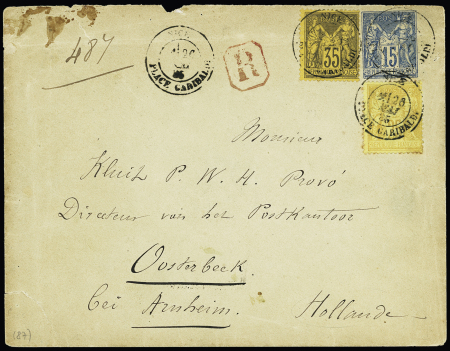 487
NICE
26
85
PLACE GARIBALDI
R
35
15
26
85
PLACE GARIBALDI
Monsieur
Kluit P. W. H. Provó
Directeur van het Postkantoor
Oosterbeek
bei Arnheim.
Hollande
(87)